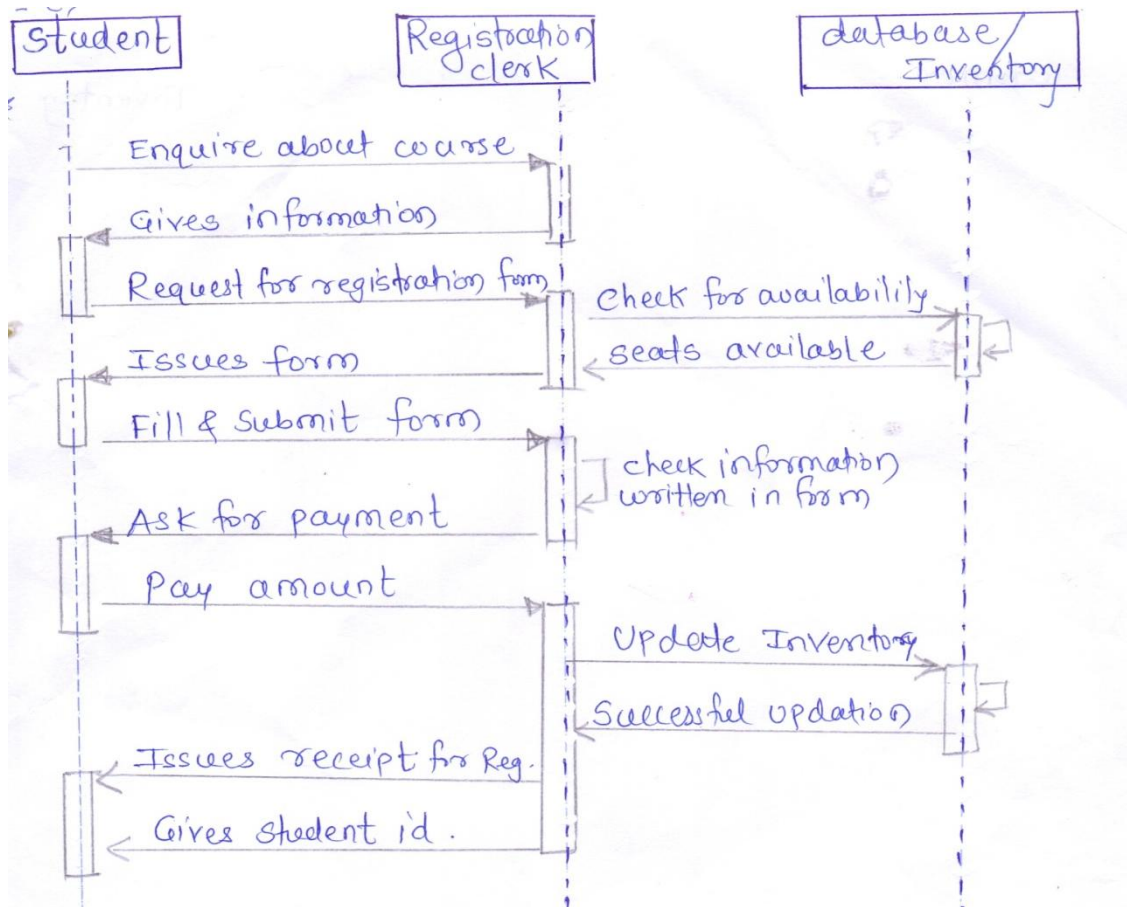 Student
Registration
clerk
database/
Inventory
Enquire about course
Gives information
Request for registration form
Check for availability
Issues form
seats available
Fill & Submit form
check information
written in form
Ask for payment
Pay amount
Update Inventory
Successful updation
Issues receipt for Reg.
Gives student id.